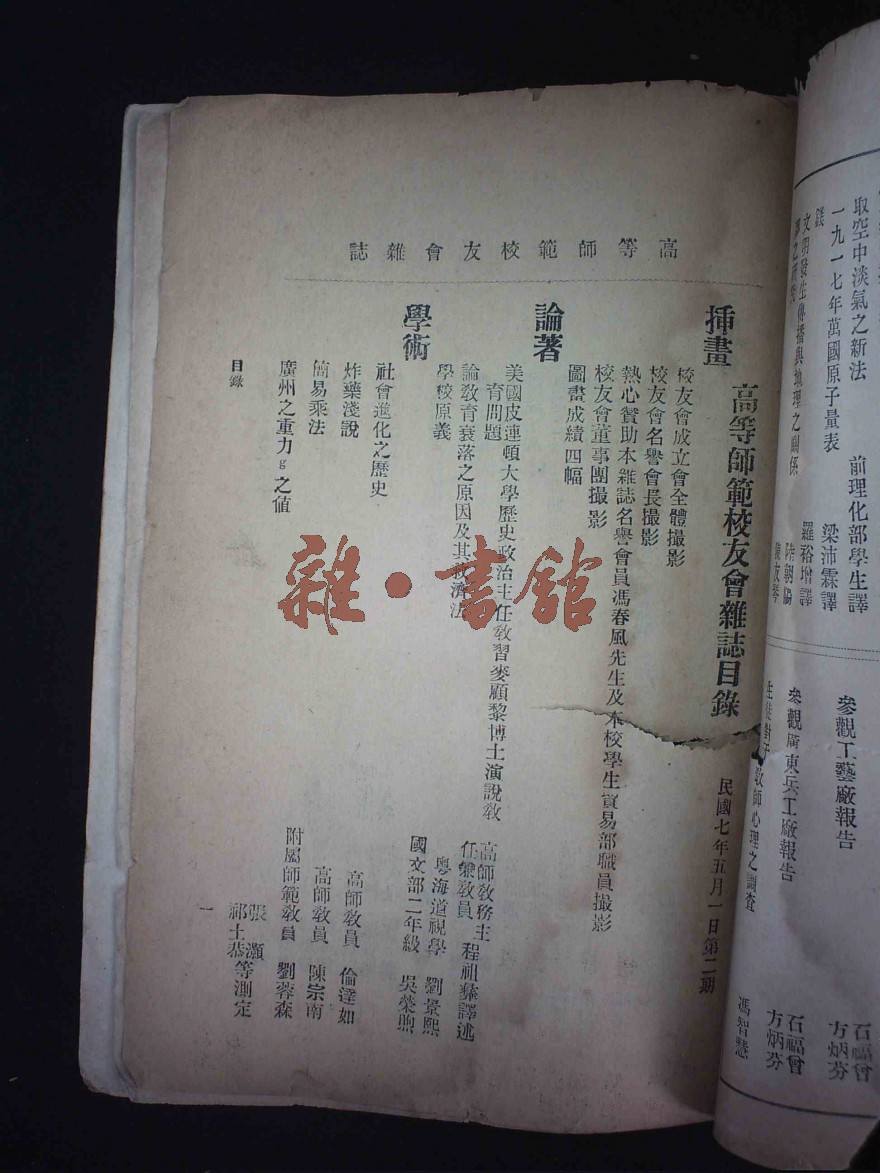 高等師範校友會雜誌
高等師範校友會雜誌目錄
民國七年五月一日第二期
揷畫
校友會成立會全體撮影
校友會名譽會長撮影
熱心賛助本雜誌名譽會員馮春風先生及本校學生貿易部職員撮影
校友會董事團撮影
圖畫成績四幅
論著
美國皮連頓大學歷史政治主任敎習麥顧黎博士演說敎
育問題
高師敎務主
任兼敎員 程祖彝譯述
論敎育衰落之原因及其救濟法
粤海道視學 劉景熙
學校原義
國文部二年級 吳榮煦
學術
社會進化之歷史
高師敎員 倫達如
炸藥淺說
高師敎員 陳宗南
簡易乘法
附屬師範敎員 劉蓉森
廣州之重力g之值
張灝
祁士恭等測定
目錄
一
雜·書館
取空中淡氣之新法 前理化部學生譯
一九一七年萬國原子量表 梁沛霖譯
鎂 羅裕增譯
文明發生傳播與地理之關係
之研究
友琴
參觀工藝廠報告
石福曾
方炳芬
參觀廣東兵工廠報告
石福曾
方炳芬
生徒對于敎師心理之調査 馮智慧